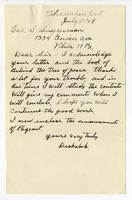 July 5-49
Geo. L.
1334
Phila. 19 Pa.
Dear Sir - I acknowledge
your letter and the book of
Behind the tree of peace. Thanks
a lot for your trouble and in
due time I will study the contents
Will give my comments when I
will conclude. I hope you will
Continue the good work.
I now enclose the announcement
of Pageant.
Yours very truly